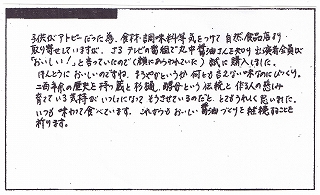 子供がアトピーだった為、食材・調味料等気をつけて自然食品店より
取り寄せていますが、さるテレビの番組で丸中醤油さんをやり出演者全員が
「おいしい!」と言っていたので(顔にあらわれていた)試しに購入しました。
ほんとうにおいしいのですね。まろやかというか何とも言えない味なのにびっくり。
二百年余の歴史を持つ蔵と杉樽、酵母という伝統と作る人の慈しみ
育てている気持がいっしょになってそうさせているのだと、とてもうれしく思いました。
いつも味わって食べています。これからもおいしい醤油づくりを継続することを
祈ります。